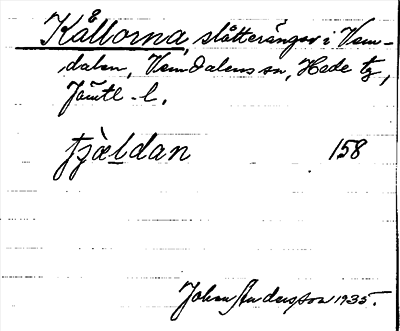 Kållorna, slåtterängar i Vem-
dalen, Vemdalens sn, Hede tg,
Jämtl. l.
tjæ̀ldan 158
Johan Andersson 1935.